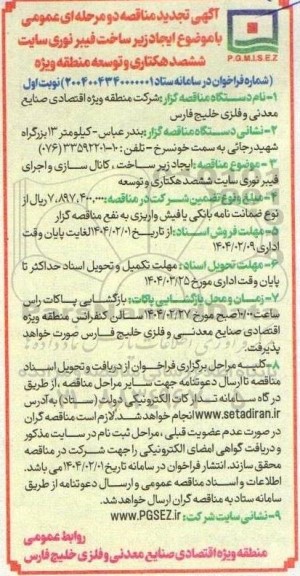 آگهی تجدید مناقصه دو مرحله ای عمومی
با موضوع ایجاد زیر ساخت فیبر نوری سایت
ششصد هکتاری و توسعه منطقه ویژه
P.G.M.I.S.E.Z
(شماره فراخوان در سامانه ستاد ۲۰۰۴۰۰۴۳۴۰۰۰۰۰۱) نوبت اول
۱- نام دستگاه مناقصه گزار: شرکت منطقه ویژه اقتصادی صنایع
معدنی و فلزی خلیج فارس
۲- نشانی دستگاه مناقصه گزار: بندر عباس- کیلومتر ۱۳ بزرگراه
شهید رجائی به سمت خونسرخ - تلفن: ۱۰-۳۳۵۹۲۲۰۱ (۰۷۶)
۳- موضوع مناقصه: ایجاد زیر ساخت، کانال سازی و اجرای
فیبر نوری سایت ششصد هکتاری و توسعه
۴- مبلغ و نوع تضمین شرکت در مناقصه: ۷،۸۹۷،۴۰۰،۰۰۰ ریال از
نوع ضمانت نامه بانکی یا فیش واریزی به نفع مناقصه گزار
۵- مهلت فروش اسناد: از تاریخ ۱۴۰۴/۰۲/۰۱ لغایت پایان وقت
اداری ۱۴۰۴/۰۲/۰۹
۶- مهلت تحویل اسناد: مهلت تکمیل و تحویل اسناد حداکثر تا
پایان وقت اداری مورخ ۱۴۰۴/۰۳/۲۵
۷- زمان و محل بازگشایی پاکات: بازگشایی پاکات راس
ساعت ۱۰:۰۰ صبح مورخ ۱۴۰۴/۰۲/۲۷ سالن کنفرانس منطقه ویژه
اقتصادی صنایع معدنی و فلزی خلیج فارس صورت خواهد
پذیرفت.
۸- کلیه مراحل برگزاری فراخوان از دریافت و تحویل اسناد
مناقصه تا ارسال دعوتنامه جهت سایر مراحل مناقصه، از طریق
درگاه سامانه تدارکات الکترونیکی دولت (ستاد) به آدرس
www.setadiran.ir انجام خواهد شد. لازم است مناقصه گران
در صورت عدم عضویت قبلی، مراحل ثبت نام در سایت مذکور
و دریافت گواهی امضای الکترونیکی را جهت شرکت در مناقصه
محقق سازند. انتشار فراخوان در سامانه تاریخ ۱۴۰۴/۰۲/۰۱ می باشد.
اطلاعات و اسناد مناقصه عمومی و ارسال دعوتنامه از طریق
سامانه ستاد به مناقصه گران ارسال خواهد شد.
۹- نشانی سایت شرکت: www.PGSEZ.ir
روابط عمومی
منطقه ویژه اقتصادی صنایع معدنی و فلزی خلیج فارس